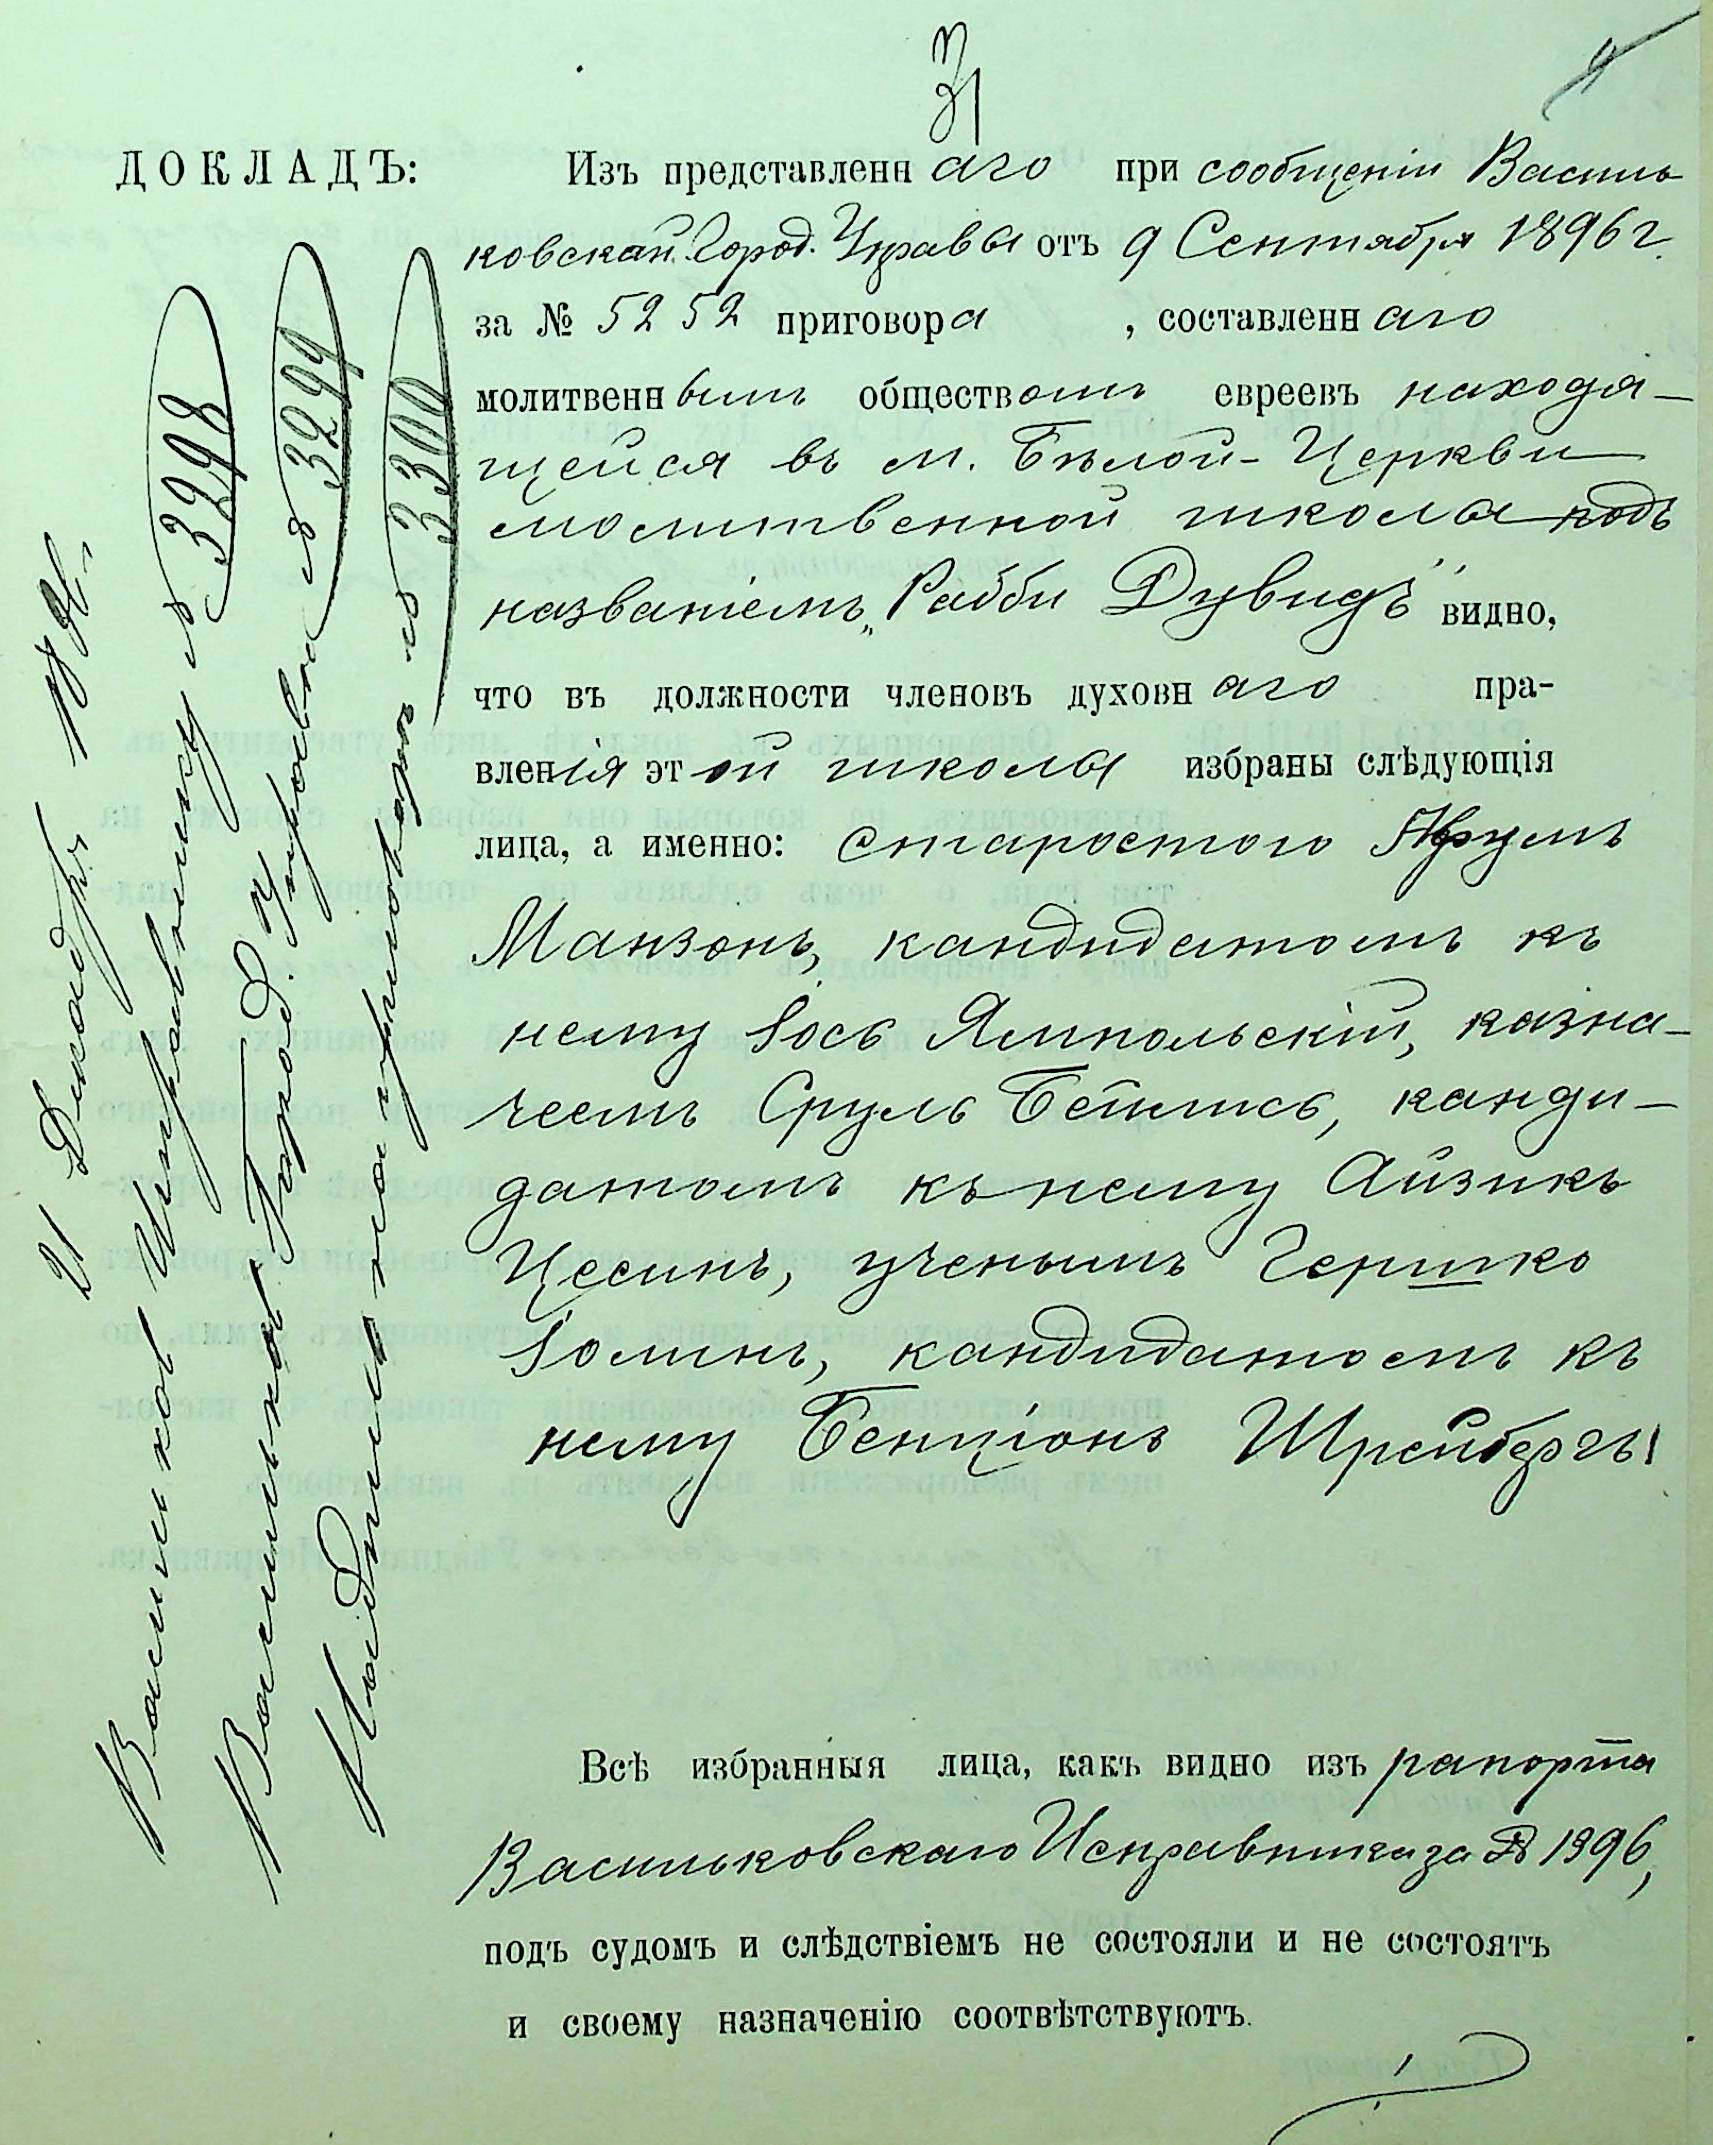 31
4
ДОКЛАДЪ:
Изъ представленнаго при сообщеніи Василь
ковской Город. Управы отъ 9 Сентября 1896 г.
за № 5252 приговора, составленнаго
молитвеннымъ обществомъ евреевъ находя-
щейся въ м. Бѣлой-Церкви
молитвенной школы подъ
названіемъ „Рабби Дувидъ" видно,
что въ должности членовъ духовнаго пра-
вленія этой школы избраны слѣдующія
лица, а именно: старостою
Манзонъ, кандидатомъ къ
нему Іось Ямпольскій, казна-
чеемъ Сруль Бейлисъ, канди-
датомъ къ нему Айзикъ
Цесинъ, ученымъ Гершко
Іолинъ, кандидатомъ къ
нему Бенціонъ Шрейбергъ
Всѣ избранныя лица, какъ видно изъ рапорта
Васильковскаго Исправника за № 1396,
подъ судомъ и слѣдствіемъ не состояли и не состоятъ
и своему назначенію соотвѣтствуютъ.
21 Декабр. 1896.
Васильков Исправнику № 3298
Васильков Город. Управа № 3299
Надпись на приговоръ № 3300